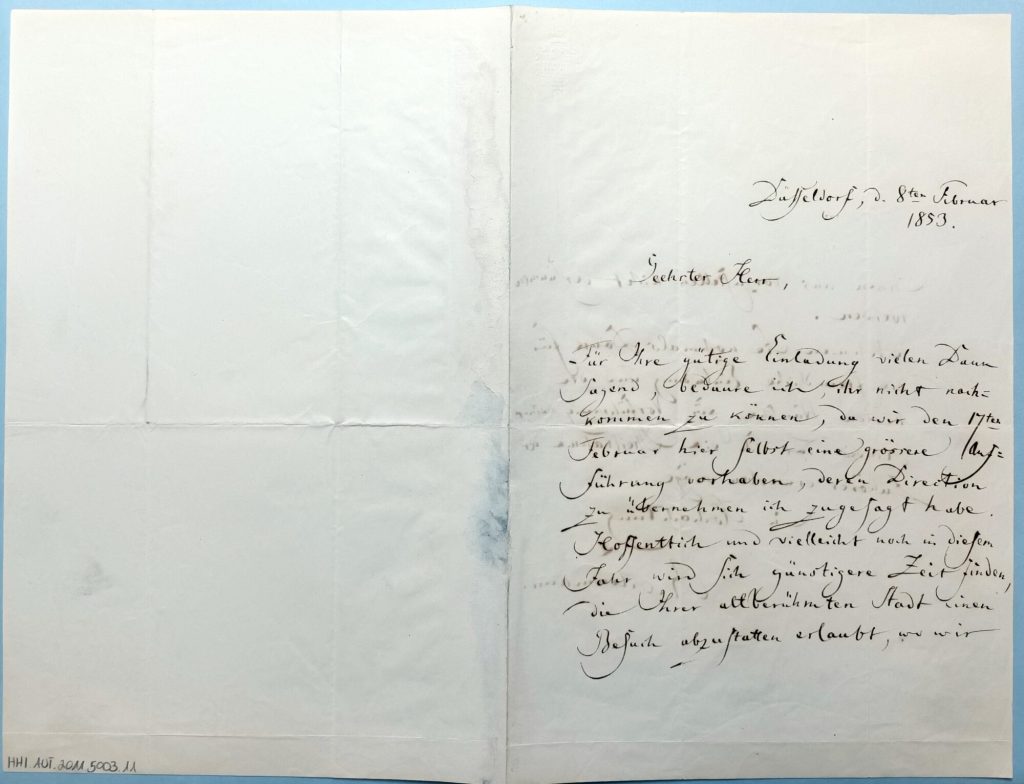 Düsseldorf, d. 8ten Februar
1853.
Geehrter Herr,
Für Ihre gütige Einladung vielen Dank
sagend, bedaure ich, ihr nicht nach=
kommen zu können, da wir den 17ten
Februar hier selbst eine grössere Auf=
führung vorhaben, deren Direction
zu übernehmen ich zugesagt habe.
Hoffentlich und vielleicht noch in diesem
Jahr wird sich günstigere Zeit finden,
die Ihrer altberühmten Stadt einen
Besuch abzustatten erlaubt, wo wir
HHI.AUT.2011.5003.11